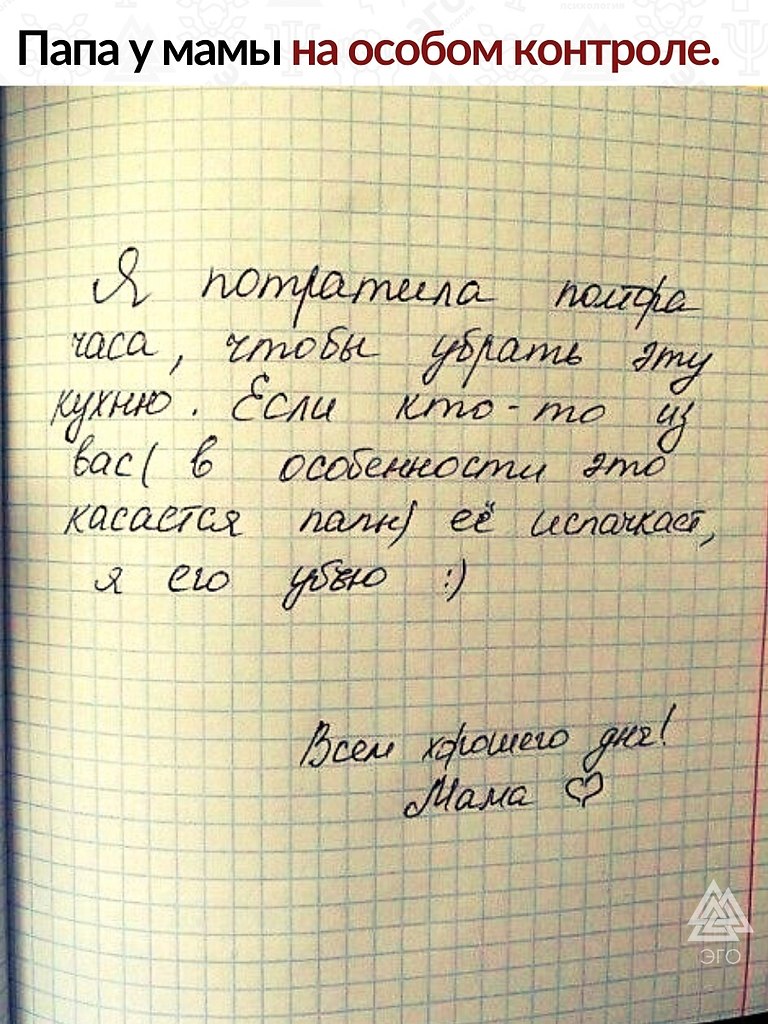 Папа у мамы на особом контроле.
Я потратила полтора
часа, чтобы убрать эту
кухню. Если кто-то из
вас( в особенности это
касается папы) её испачкает,
я его убью :)
Всем хорошего дня!
Мама ♡
ЭГО